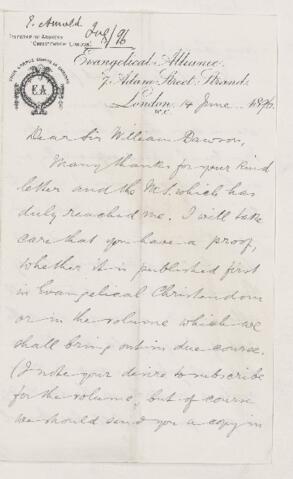 E. Arnold
July/96
TELEGRAPHIC ADDRESS
"CHRISTENDOM LONDON"
E.A.
Evangelical Alliance,
7, Adam Street, Strand,
London, 14 June 1896.
W.C.
Dear Sir William Dawson,
Many thanks for your kind
letter and the MS. which has
duly reached me. I will take
care that you have a proof,
whether it is published first
in Evangelical Christendom
or in the volume which we
shall bring out in due course.
(I note your desire to subscribe
for the volume, but of course
we should send you a copy in